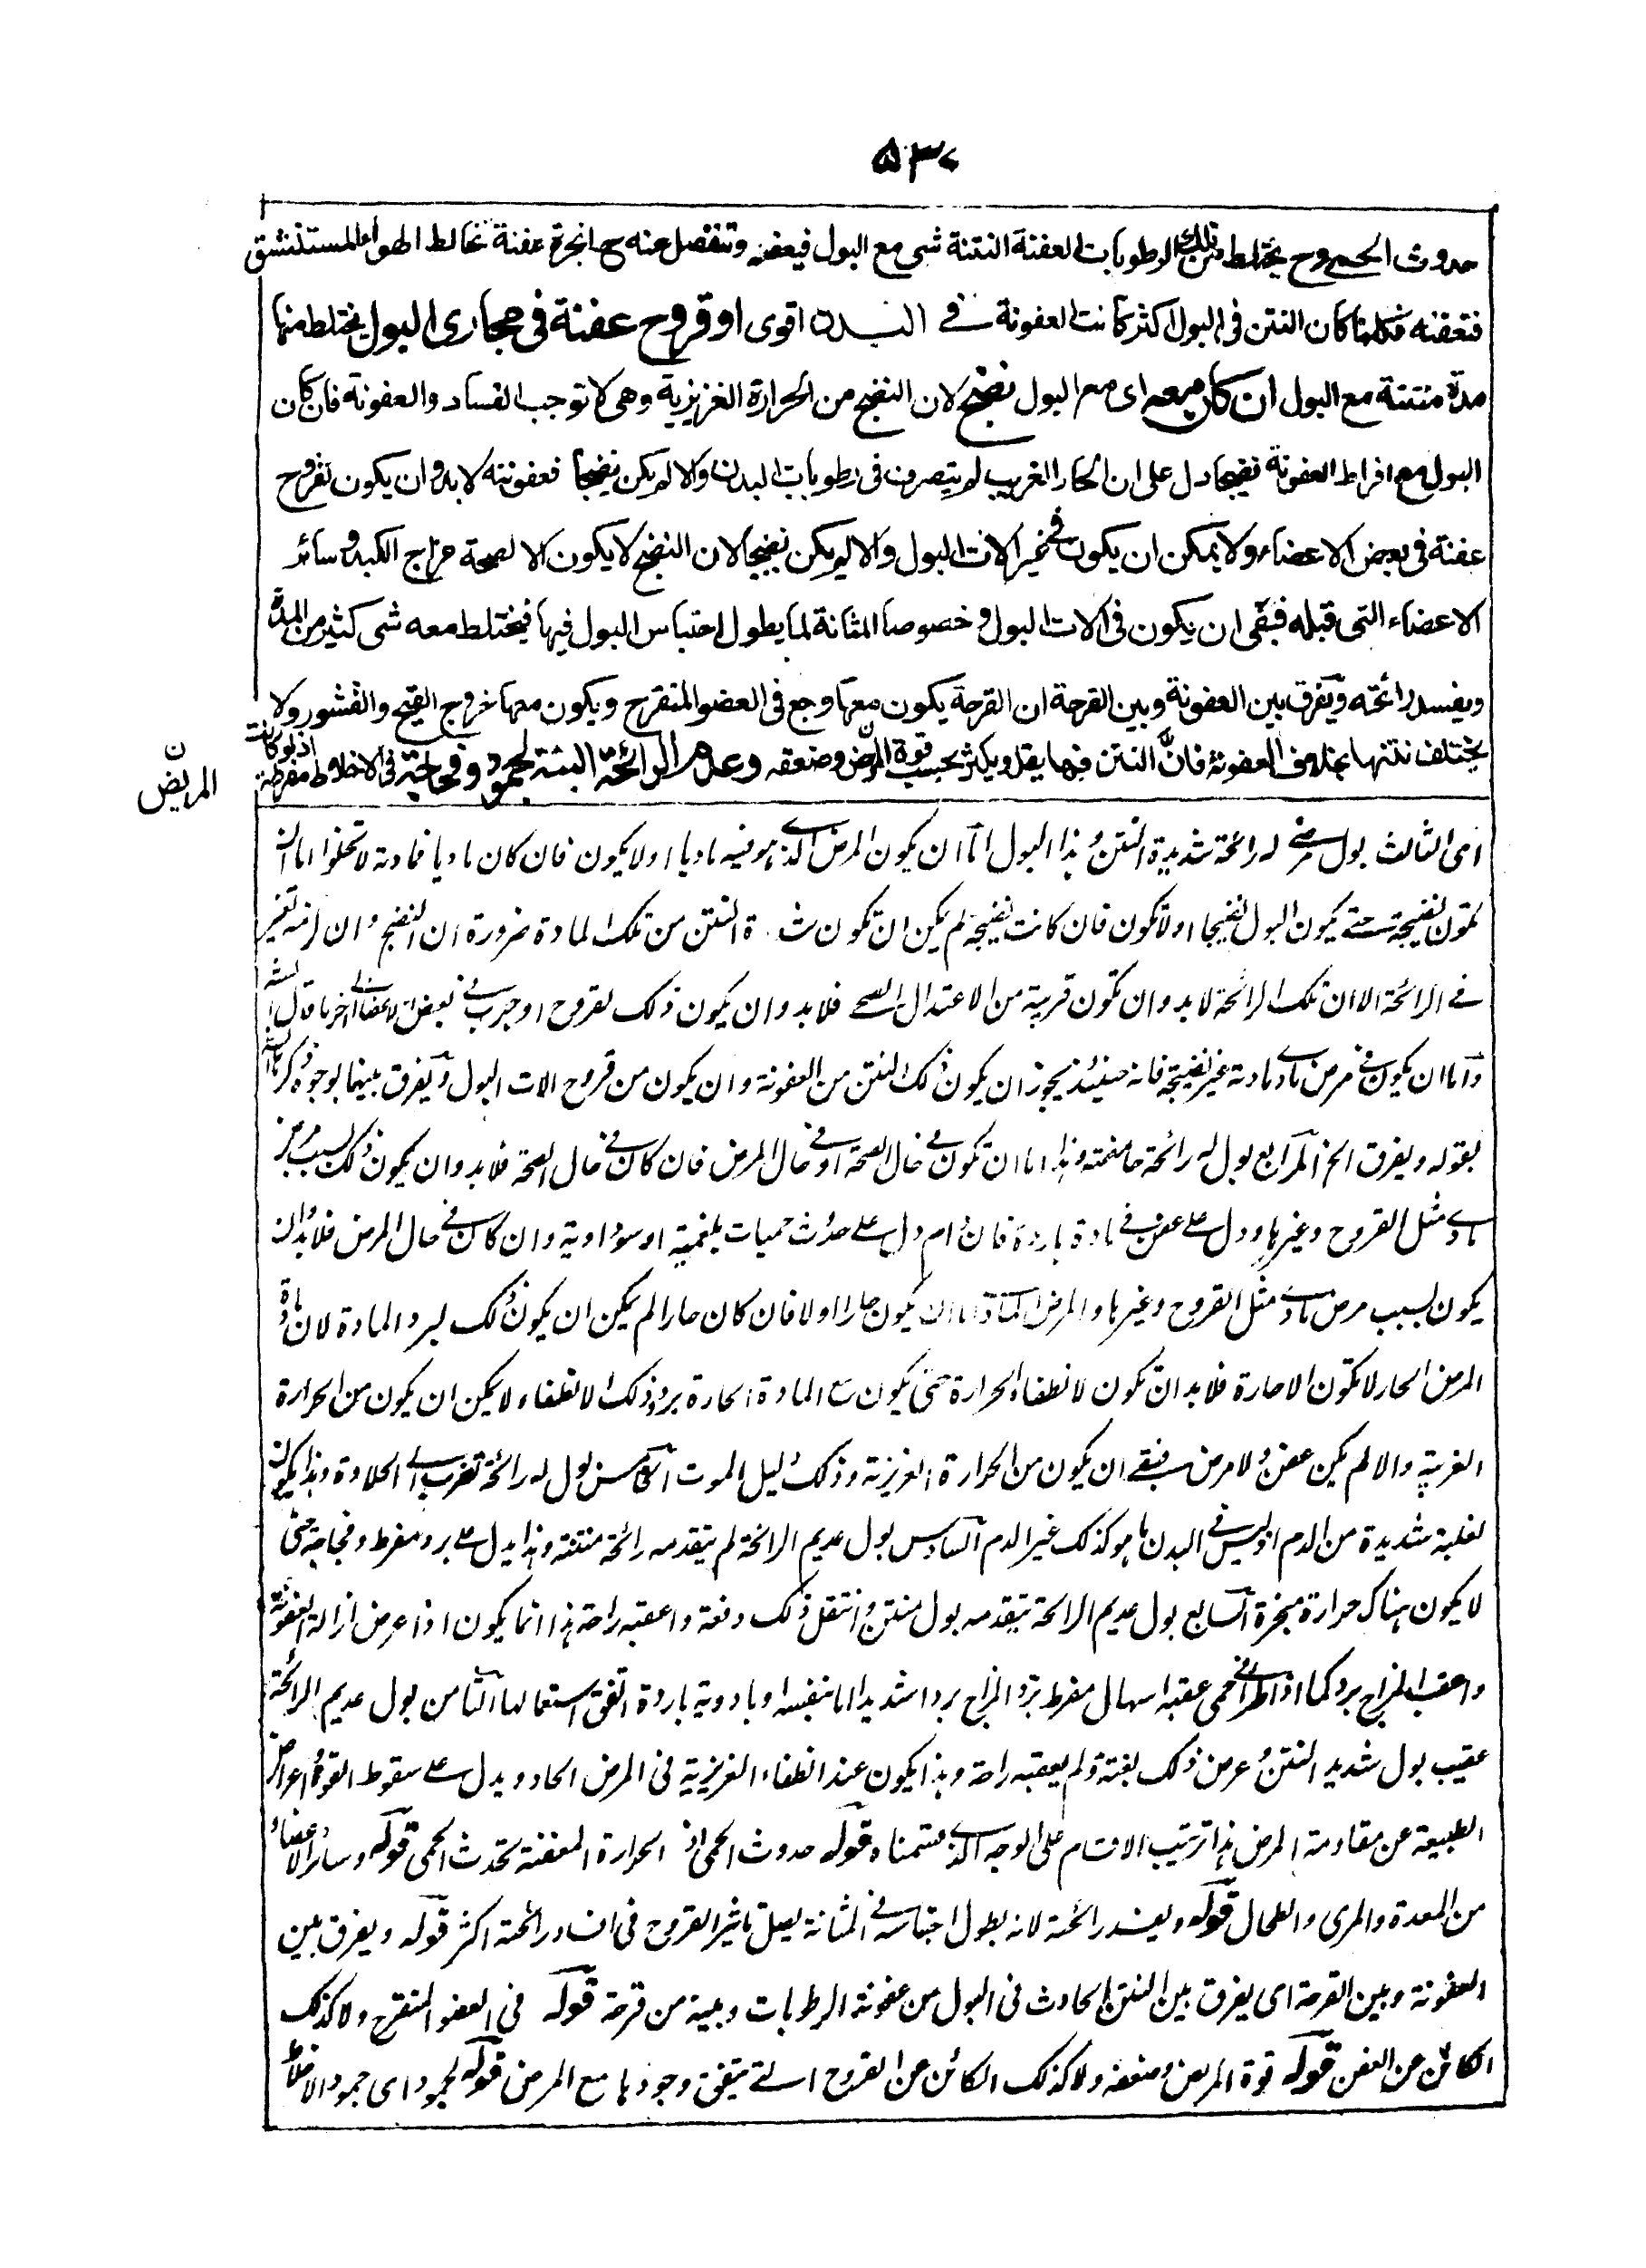 ٥٣٠
حدوث الحمى وح يختلط من تلك الرطوبات العفنة النتنة شى مع البول فيعفنه وتنفصل عنه ح ابخرة عفنة تخالط الهواء المستنشق
فتعفنه فكلما كان النتن فى البول اكثر كانت العفونة فے البدن اقوى او قروح عفنة فى مجارى البول يختلط منها
مدة منتنة مع البول ان كان معه اى مع البول نضج لان النضج من الحرارة الغريزية وهى لا توجب الفساد والعفونة فان كان
البول مع افراط العفونة نضيجا دل على ان الحار الغريب لم يتصرف فى رطوبات البدن والا لم يكن نضيجا فعفونته لابد وان يكون لقروح
عفنة فى بعض الاعضاء ولا يمكن ان يكون فى غير الات البول والا لم يكن نضيجا لان النضج لا يكون الا لصحة مزاج الكبد وسائر
الاعضاء التى قبله فبقى ان يكون فى الات البول وخصوصا المثانة لما يطول احتباس البول فيها فيختلط معه شى كثير من المدة
ويفسد رائحته ويفرق بين العفونة وبين القرحة ان القرحة يكون معها وجع فى العضو المتقرح ويكون معها خروج القيح والقشور ولا
يختلف نتنها بخلاف العفونة فان النتن فيها يقل ويكثر بحسب قوة المرض وضعفه وعدم الرائحة البتة لجمود وفجاجة فى الاخلاط مفرطة اذ لو كانت
ن
المريض
اى الثالث بول مرضے له رائحة شديدة النتن وهذا البول اما ان يكون المرض الذے هو فيه ماديا او لا يكون فان كان ماديا فمادته لا تخلوا اما ان
تكون نضيجة حتے يكون البول نضيجا او لا تكون فان كانت نضيجة لم يكن ان تكون شدة النتن من تلك المادة ضرورة ان النضج وان لزمه تغير
فے الرائحة الا ان تلك الرائحة لابد وان تكون قريبة من الاعتدال الصحے فلابد وان يكون ذلك لقروح او جرب فے بعض الاعضاء الى اخر ما قال الشه
واما ان يكون فے مرض مادے مادته غير نضيجة فانه حينئذ يجوز ان يكون ذلك النتن من العفونة وان يكون من قروح الات البول ويفرق بينهما بوجوه ذكرها الشه
بقوله ويفرق الخ الرابع بول له رائحة حامضة وهذا اما ان تكون فے حال الصحة او فے حال المرض فان كان فے حال الصحة فلابد وان يكون ذلك لسبب مرض
مادے مثل القروح وغيرها ودل علے عفن فے مادة باردة فان دام دل علے حدوث حميات بلغمية او سوداوية وان كان فے حال المرض فلابد ان
يكون بسبب مرض مادے مثل القروح وغيرها والمرض المادے اما ان يكون حارا او لا فان كان حارا لم يكن ان يكون ذلك لبرد المادة لان مادة
المرض الحار لا تكون الا حارة فلابد ان تكون لانطفاء الحرارة حتى يكون مع المادة الحارة برد وذلك الانطفاء لا يمكن ان يكون من الحرارة
الغريبة والا لم يكن عفن ولا مرض فبقے ان يكون من الحرارة الغريزية وذلك دليل الموت الخامس بول له رائحة تضرب الے الحلاوة وهذا يكون
لغلبة شديدة من الدم اذ ليس فے البدن ما هو كذلك غير الدم السادس بول عديم الرائحة لم يتقدمه رائحة منتنة وهذا يدل علے برد مفرط وفجاجة حتى
لا يكون هناك حرارة مبخرة السابع بول عديم الرائحة يتقدمه بول منتن وانتقل ذلك دفعة واعقبه راحة هذا انما يكون اذا عرض ازالة العفونة
واعقب المزاج برد كما اذا طرأ فے حمى عقبه اسهال مفرط برد المزاج بردا شديدا اما بنفسه او بادوية باردة اتفق استعمالها الثامن بول عديم الرائحة
عقيب بول شديد النتن وعرض ذلك بغتة ولم يعقبه راحة وهذا يكون عند انطفاء الغريزية فى المرض الحاد ويدل علے سقوط القوة واعراض
الطبيعة عن مقاومة المرض هذا ترتيب الاقسام على الوجه الذے قسمناه قوله حدوث الحمى اذ الحرارة المعفنة تحدث الحمى قوله وسائر الاعضاء
من المعدة والمرى والطحال قوله ويفسد رائحته لانه بطول احتباسه فے المثانة يصل تاثير القروح فى افساد رائحته اكثر قوله ويفرق بين
العفونة وبين القرحة اى يفرق بين النتن الحادث فى البول من عفونة الرطوبات وبينه من قرحة قوله فى العضو المتقرح ولا كذلك
الكائن عن العفن قوله قوة المريض وضعفه ولا كذلك الكائن عن القروح التے يتفق وجودها مع المرض قوله لجمود اى جمود الاخلاط